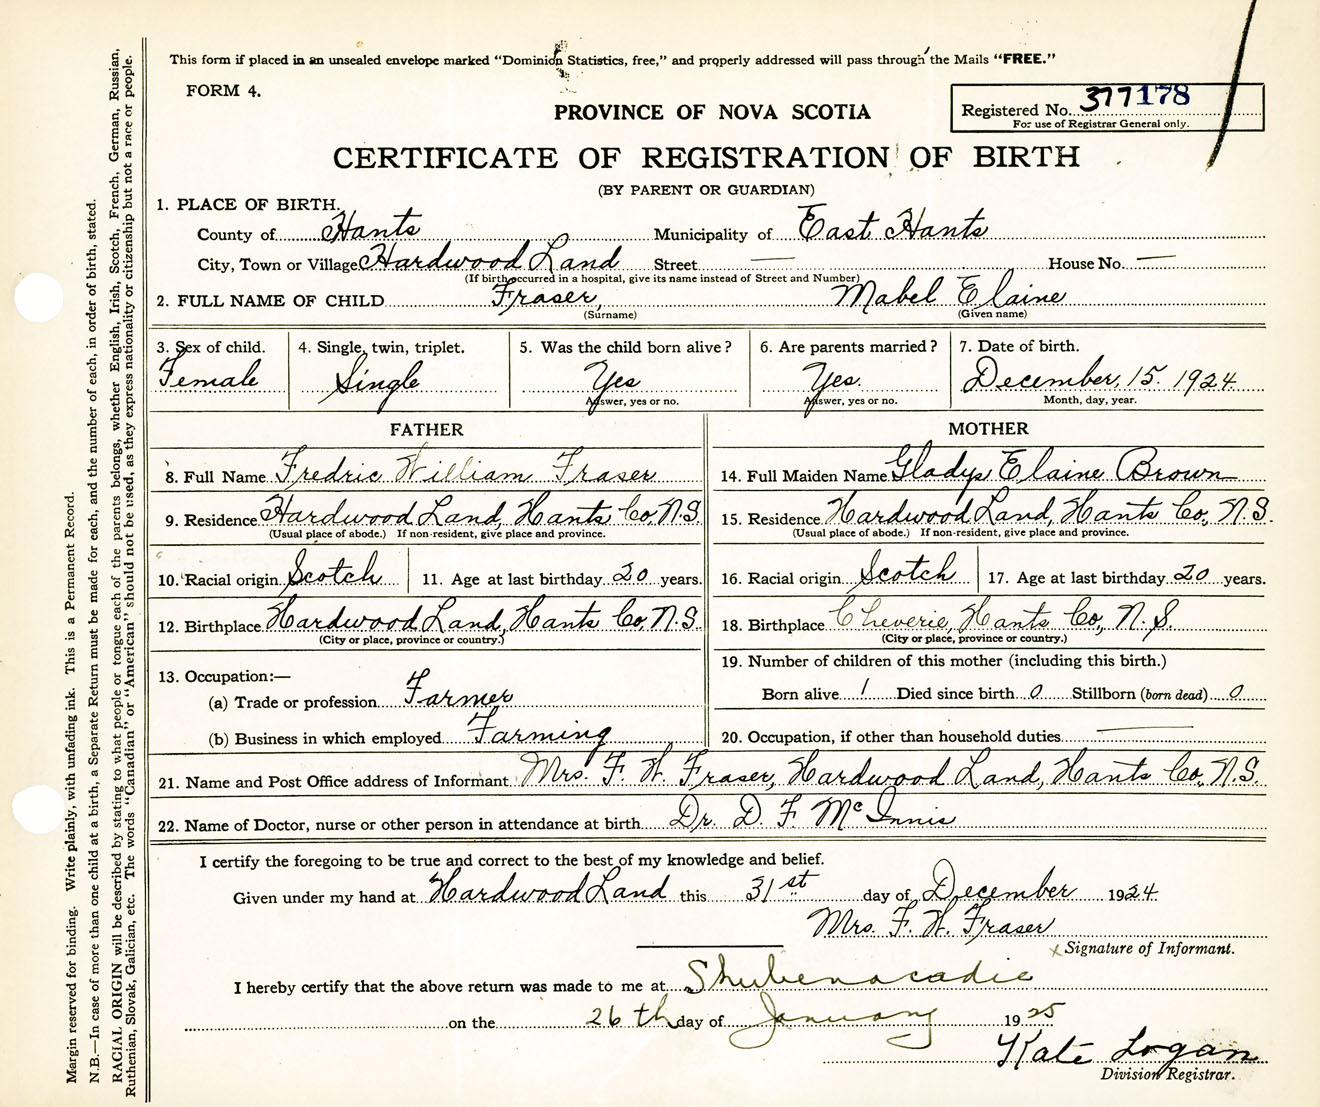 This form if placed in an unsealed envelope marked "Dominion Statistics, free," and properly addressed will pass through the Mails "FREE."
FORM 4.
PROVINCE OF NOVA SCOTIA
Registered No. 377178
For use of Registrar General only.
CERTIFICATE OF REGISTRATION OF BIRTH
(BY PARENT OR GUARDIAN)
1. PLACE OF BIRTH.
County of Hants Municipality of East Hants
City, Town or Village Hardwood Land Street — House No. —
(If birth occurred in a hospital, give its name instead of Street and Number)
2. FULL NAME OF CHILD Fraser, Mabel Elaine
(Surname) (Given name)
3. Sex of child. 4. Single, twin, triplet. 5. Was the child born alive? 6. Are parents married? 7. Date of birth.
Female Single Yes Yes. December, 15. 1924
Answer, yes or no. Answer, yes or no. Month, day, year.
FATHER MOTHER
8. Full Name Fredric William Fraser 14. Full Maiden Name Gladys Elaine Brown
9. Residence Hardwood Land, Hants Co, N.S. 15. Residence Hardwood Land, Hants Co., N.S.
(Usual place of abode.) If non-resident, give place and province. (Usual place of abode.) If non-resident, give place and province.
10. Racial origin Scotch 11. Age at last birthday 20 years. 16. Racial origin Scotch 17. Age at last birthday 20 years.
12. Birthplace Hardwood Land, Hants Co, N.S. 18. Birthplace Cheverie, Hants Co., N.S.
(City or place, province or country.) (City or place, province or country.)
13. Occupation:— 19. Number of children of this mother (including this birth.)
(a) Trade or profession Farmer Born alive 1 Died since birth 0 Stillborn (born dead) 0
(b) Business in which employed Farming 20. Occupation, if other than household duties —
21. Name and Post Office address of Informant Mrs. F. W. Fraser, Hardwood Land, Hants Co, N.S.
22. Name of Doctor, nurse or other person in attendance at birth Dr. D. F. McInnis
I certify the foregoing to be true and correct to the best of my knowledge and belief.
Given under my hand at Hardwood Land this 31st day of December 1924.
Mrs. F. W. Fraser
x Signature of Informant.
I hereby certify that the above return was made to me at Shubenacadie
on the 26th day of January 1925
Kate Logan
Division Registrar.
Margin reserved for binding. Write plainly, with unfading ink. This is a Permanent Record.
N.B.—In case of more than one child at a birth, a Separate Return must be made for each, and the number of each, in order of birth, stated.
RACIAL ORIGIN will be described by stating to what people or tongue each of the parents belongs, whether English, Irish, Scotch, French, German, Russian,
Ruthenian, Slovak, Galician, etc. The words "Canadian" or "American" should not be used, as they express nationality or citizenship but not a race or people.